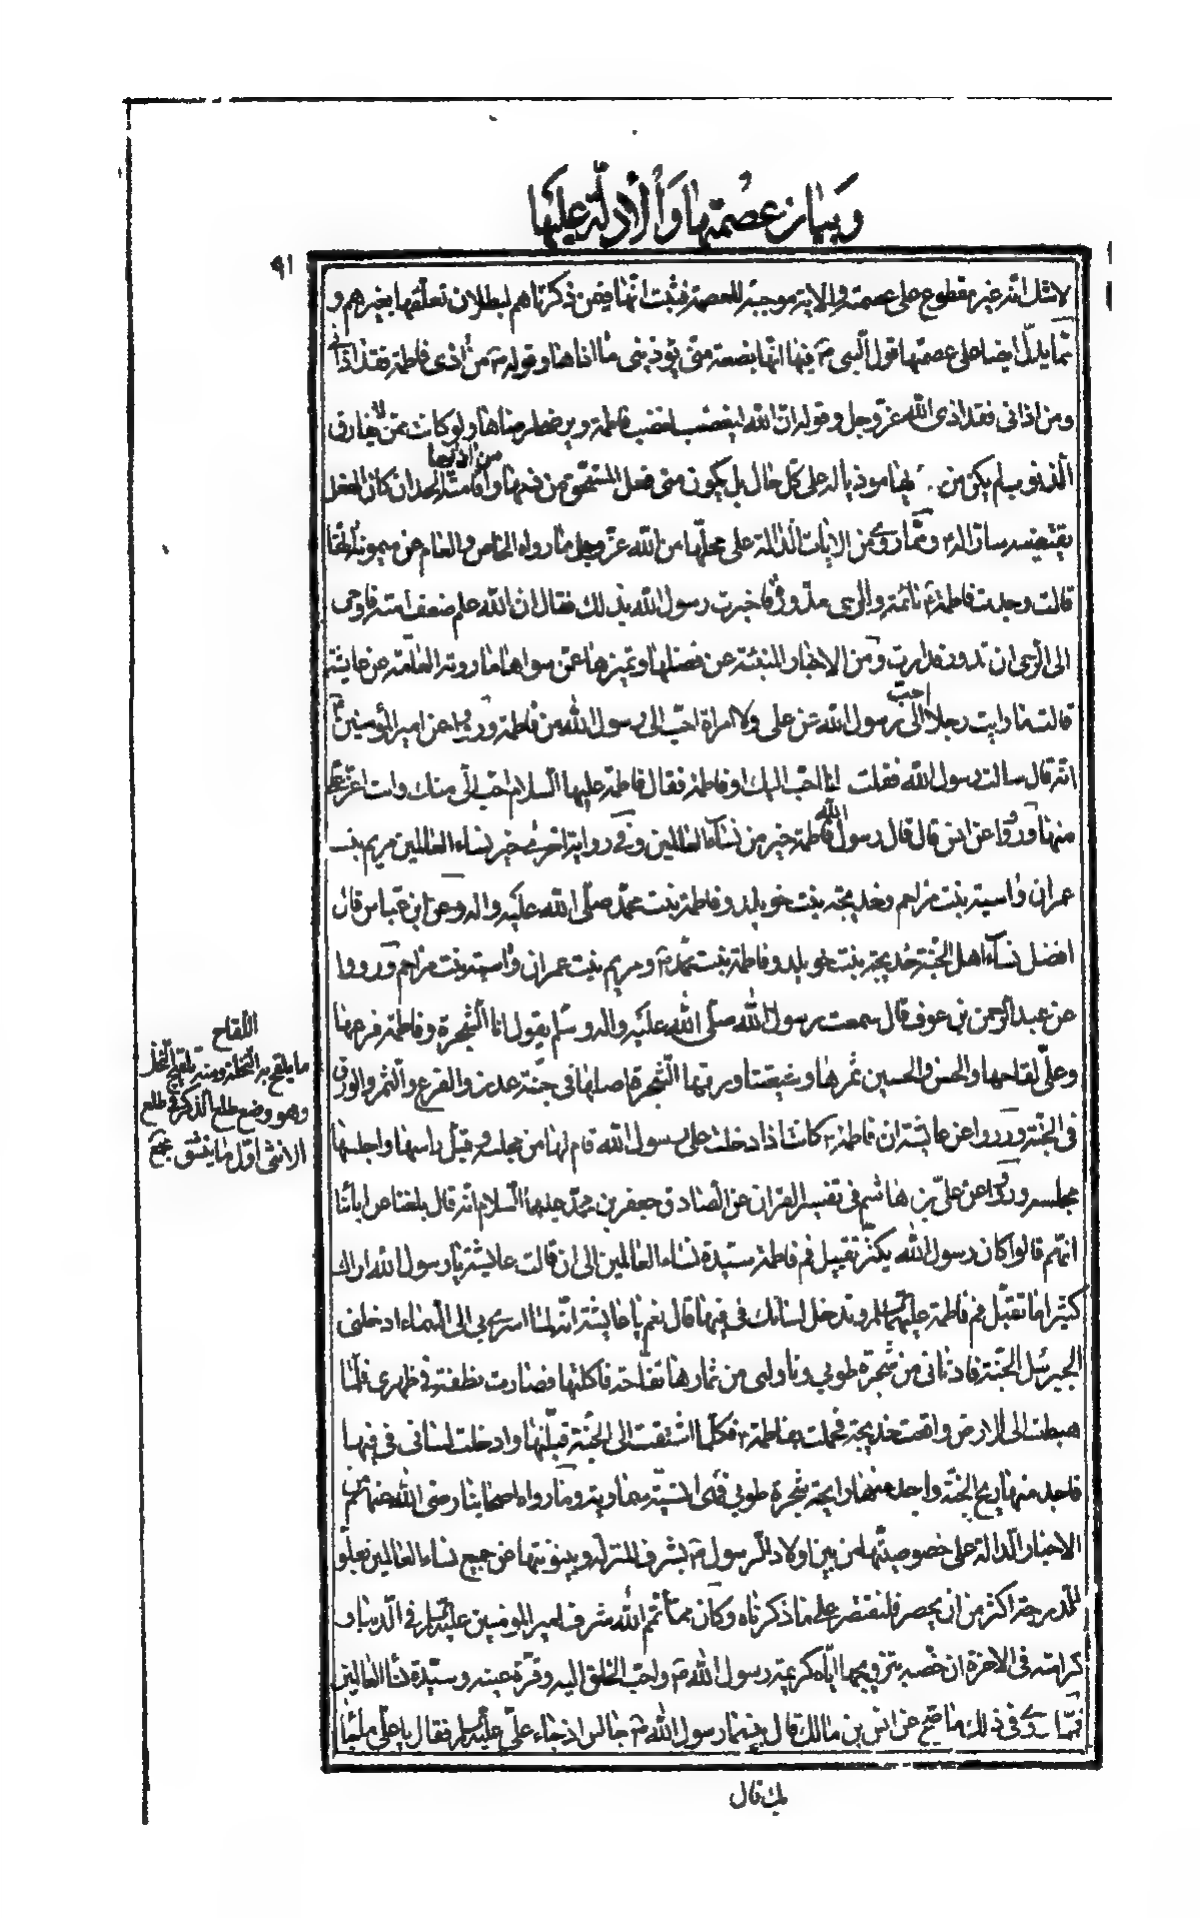 وبيان عصمتها والأدلة عليها
٩١
لاشك انه غير مقطوع على عصمته والاية موجبة للعصمة فثبت انها فيمن ذكرناهم لبطلان تعلقها بغيرهم و
مما يدل ايضا على عصمتها قول النبي ص فيها انها بضعة مني يؤذيني ما اذاها وقوله ص من اذى فاطمة فقد اذاني
ومن اذاني فقد اذى الله عز وجل وقوله ان الله ليغضب لغضب فاطمة ويرضى لرضاها ولو كانت ممن يقارف
الذنوب لم يكن من يؤذيها موذيا له على كل حال بل يكون متى فعل المستحق من ذمها واقامة الحد ان كان الفعل
من اذيها
يقتضيه سارا له ومما روي من الايات الدالة على محلها من الله عز وجل ما رواه الخاص والعام عن ميمونة انها
قالت وجدت فاطمة نائمة والرحى تدور فاخبرت رسول الله بذلك فقال ان الله علم ضعف امته فاوحى
الى الرحى ان تدور فدارت ومن الاخبار المنبئة عن فضلها وتميزها عمن سواها ما روته العامة عن عايشة
قالت ما رايت رجلا احب الى رسول الله من علي ولا امراة احب الى رسول الله من فاطمة ورووا عن امير المؤمنين
انه قال سالت رسول الله فقلت انا احب اليك او فاطمة فقال فاطمة عليها السلام احب الي منك وانت اعز علي
منها ورووا عن انس قال قال رسول الله فاطمة خير من نساء العالمين وفي رواية اخرى خير نساء العالمين مريم بنت
عمران واسية بنت مزاحم وخديجة بنت خويلد وفاطمة بنت محمد صلى الله عليه واله وعن ابن عباس قال
افضل نساء اهل الجنة خديجة بنت خويلد وفاطمة بنت محمد ص ومريم بنت عمران واسية بنت مزاحم ورووا
عن عبد الرحمن بن عوف قال سمعت رسول الله صلى الله عليه واله وسلم يقول انا الشجرة وفاطمة فرعها
وعلي لقاحها والحسن والحسين ثمرها وشيعتنا ورقها الشجرة اصلها في جنة عدن والفرع والثمر والورق
في الجنة ورووا عن عايشة ان فاطمة كانت اذا دخلت على رسول الله قام لها من مجلسه وقبل راسها واجلسها
مجلسه ورووا عن علي بن هاشم في تفسير القران عن الصادق جعفر بن محمد عليهما السلام انه قال بلغنا عن ابائنا
انهم قالوا كان رسول الله يكثر تقبيل فم فاطمة سيدة نساء العالمين الى ان قالت عايشة يا رسول الله اراك
كثيرا ما تقبل فم فاطمة عليها السلام وتدخل لسانك في فيها قال نعم يا عايشة انه لما اسري بي الى السماء ادخلني
الجبرئيل الجنة فادناني من شجرة طوبى وناولني من ثمارها تفاحة فاكلتها فصارت نطفة في ظهري فلما
هبطت الى الارض واقعت خديجة فحملت بفاطمة فكلما اشتقت الى الجنة قبلتها وادخلت لساني في فيها
فاجد منها ريح الجنة واجد منها رايحة شجرة طوبى فهي انسية سماوية وما رواه اصحابنا رضي الله عنهم من
الاخبار الدالة على خصوصيتها من بين اولاد الرسول ص بشرف المنزلة وبينونتها من جميع نساء العالمين بعلو
الدرجة اكثر من ان يحصر فلنقتصر على ما ذكرناه وكان مما تمم الله شرف امير المؤمنين عليه السلام في الدنيا و
كرامته في الاخرة ان خصه بتزويجها اياه كريمة رسول الله ص واحب الخلق اليه وقرة عينه وسيدة نساء العالمين
فمما روي في ذلك ما صح عن انس بن مالك قال بينما رسول الله ص جالس اذ جاء علي عليه السلام فقال يا علي ما جاء
بك قال
اللقاح
ما يلقح به النخلة ومنه تلقيح النخل
وهو وضع طلع الذكر في طلع
الانثى اول ما ينشق مجمع